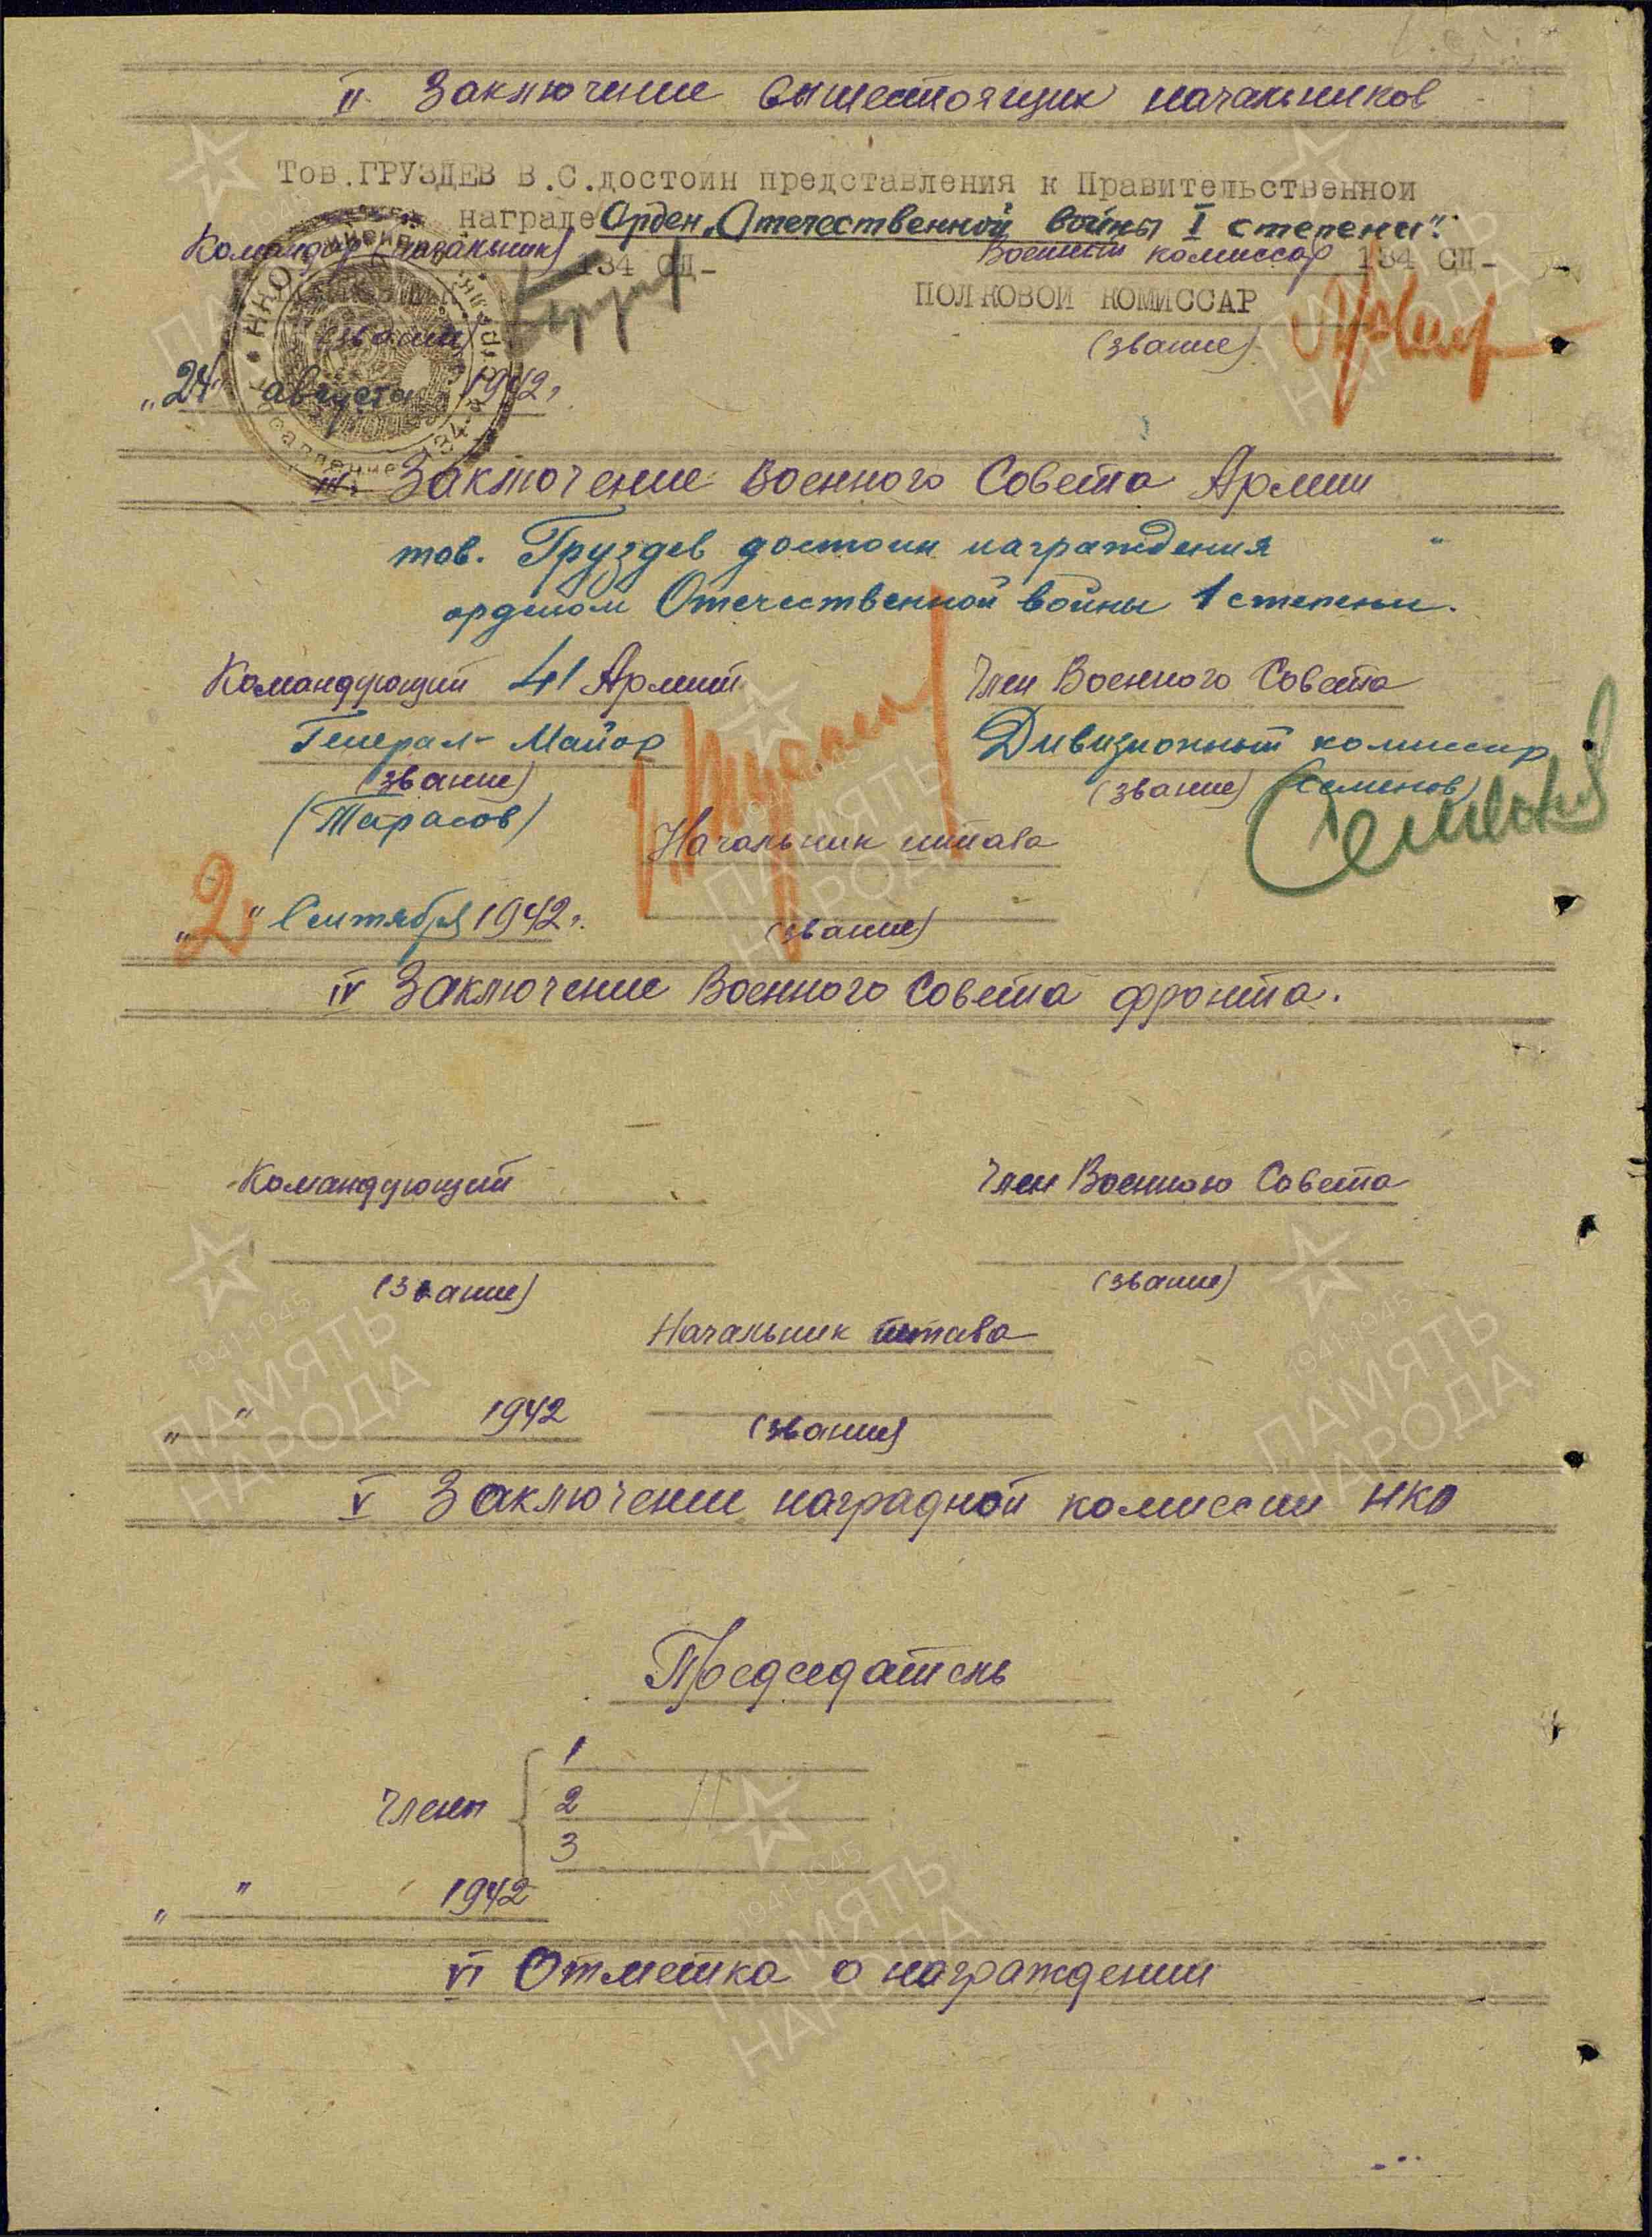 II Заключение вышестоящих начальников
Тов.ГРУЗДЕВ В.С.достоин представления к Правительственной
награде Орден „Отечественной войны I степени".
Командир (начальник) 134 СД-
Военный комиссар 134 СД-
ПОЛКОВОЙ КОМИССАР
(звание)
(звание)
„24" августа 1942г
III. Заключение Военного Совета Армии
тов. Груздев достоин награждения
орденом Отечественной войны 1 степени.
Командующий 41 Армии
Член Военного Совета
Генерал-Майор
Дивизионный комиссар
(звание)
(звание) (Семенов)
(Тарасов)
Начальник штаба
„2" Сентября 1942г.
(звание)
IV Заключение Военного Совета фронта.
Командующий
Член Военного Совета
(звание)
(звание)
Начальник штаба
„ " 1942
(звание)
V Заключение наградной комиссии НКО
Председатель
1
Члены 2
3
„ " 1942
VI Отметка о награждении
1941-1945
ПАМЯТЬ
НАРОДА